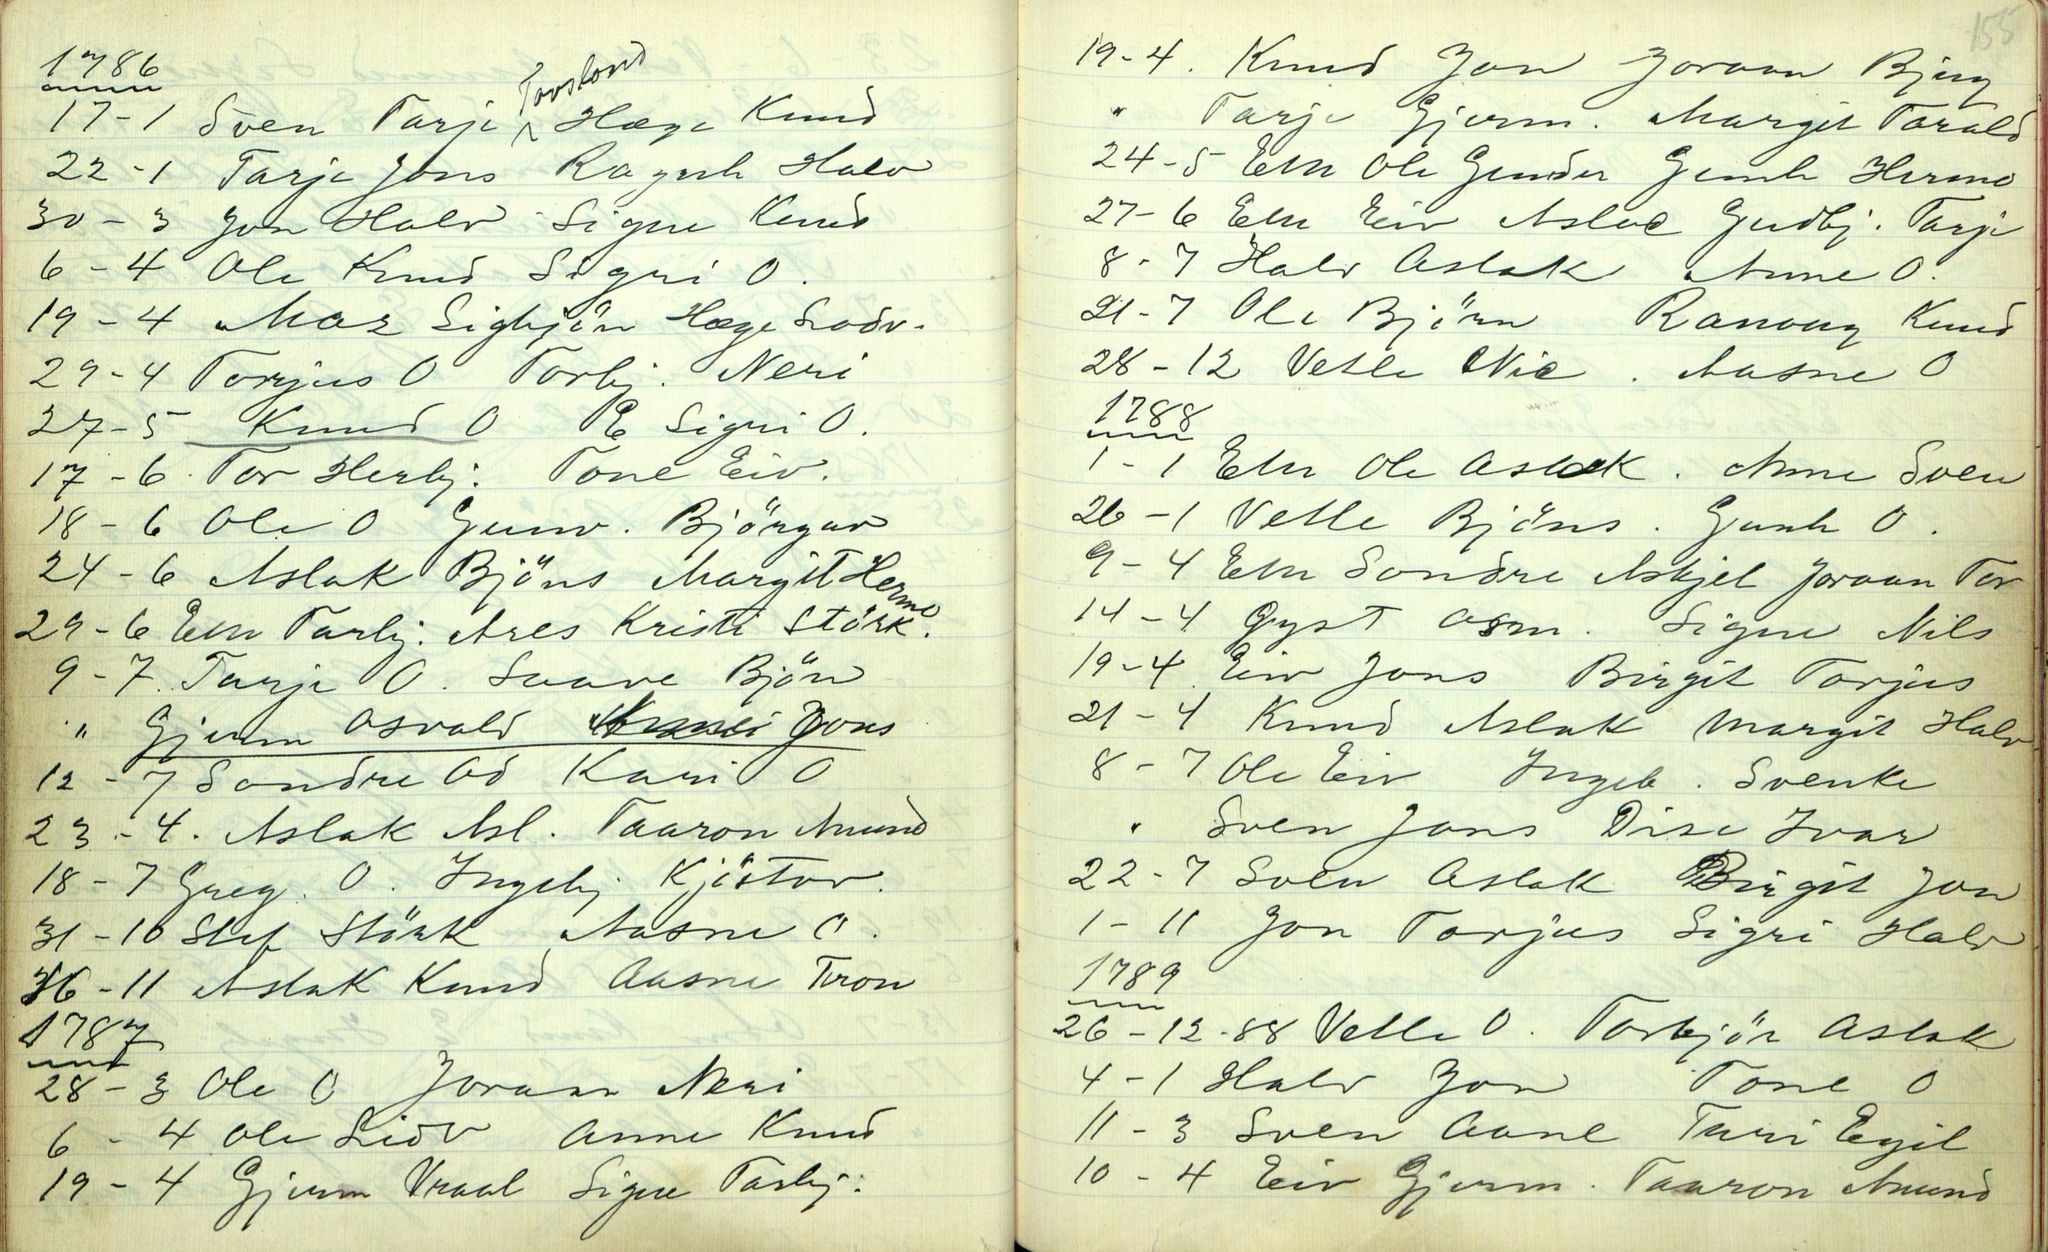 1786
17-1 Sven Tarje Tovsland Hæge Knud
22-1 Tarje Jons Ragnh Halv
30-3 Jon Halv Signe Knud
6-4 Ole Knud Sigri O.
19-4 Sigbjön Hæge Lodv.
29-4 Torjus O Torbj. Neri
27-5 Knud O E Sigri O.
17-6 Tor Herbj. Tone Eiv.
18-6 Ole O Gunv. Björguv
24-6 Aslak Bjöns Margit Herme
29-6 Em Tarbj. Ares Kristi Störk.
9-7. Tarje O. Saave Björn
" Gjerm Osvald Jons
12-7 Sondre Od Kari O
23-4. Aslak Asl. Taaron Amund
18-7 Greg. O. Ingebj. Kjöstov.
31-10 Stef Störk Aasne O.
26-11 Aslak Knud Aasne Tron
1787
28-3 Ole O Joraan Neri
6-4 Ole Lidv Anne Knud
19-4 Gjerm Vraal Signe Tarbj.
155
19-4. Knud Jon Joraan Bjug
" Tarje Gjerm. Margit Tarald
24-5 Em Ole Gunder Gunh Hermo
27-6 Em Eiv Aslac Gudbj. Tarje
8-7 Halv Aslak Anne O.
21-7 Ole Björn Ranoug Knud
28-12 Vetle Nic. Aasne O
1788
1-1 Em Ole Aslak. Anne Sven
26-1 Vetle Bjöns. Gunh O.
9-4 Em Sondre Askjel Joraan Tor
14-4 Gyst Asm. Signe Nils
19-4 Eiv Jons Birgit Torjus
21-4 Knud Aslak Margit Halv
8-7 Ole Eiv Ingeb. Svenke
" Sven Jons Dise Ivar
22-7 Sven Aslak Birgit Jon
1-11 Jon Torjus Sigri Halv
1789
26-12-88 Vetle O. Torbjör Aslak
4-1 Halv Jon Tone O
11-3 Sven Aane Turi Egil
10-4 Eiv Gjerm. Taaron Amund